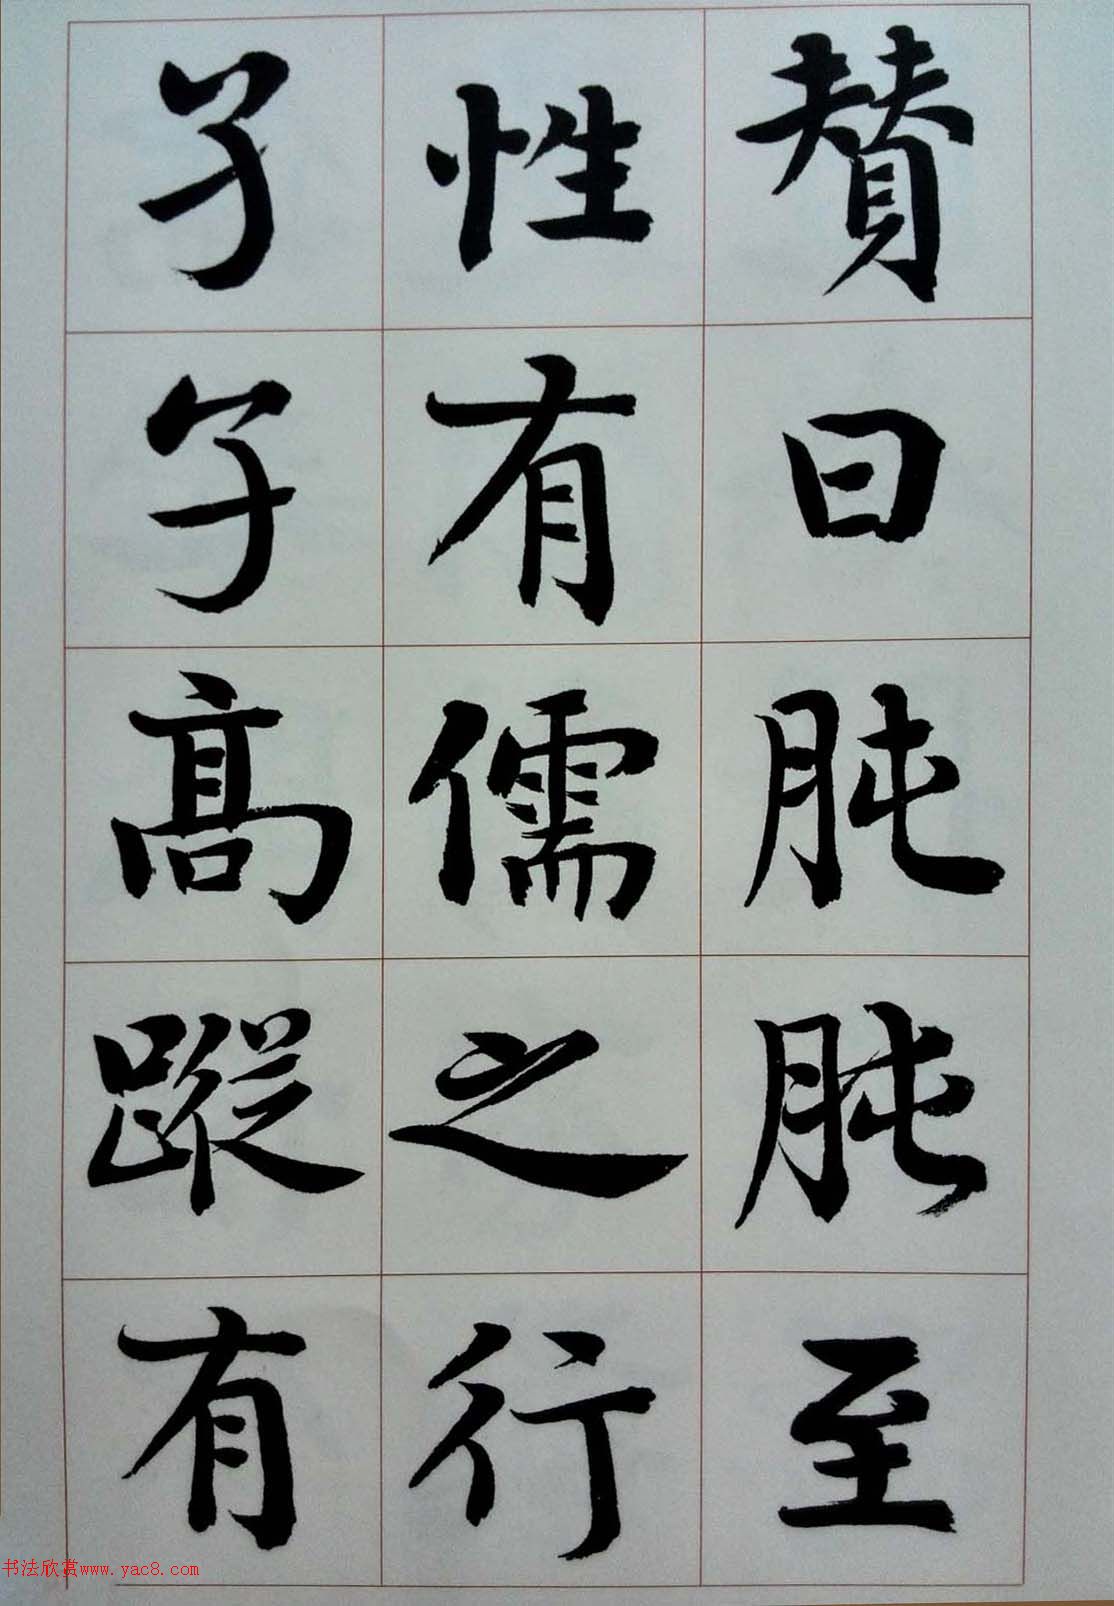 賛曰肫肫至
性有儒之行
孑孑髙蹤有
书法欣赏www.yac8.com